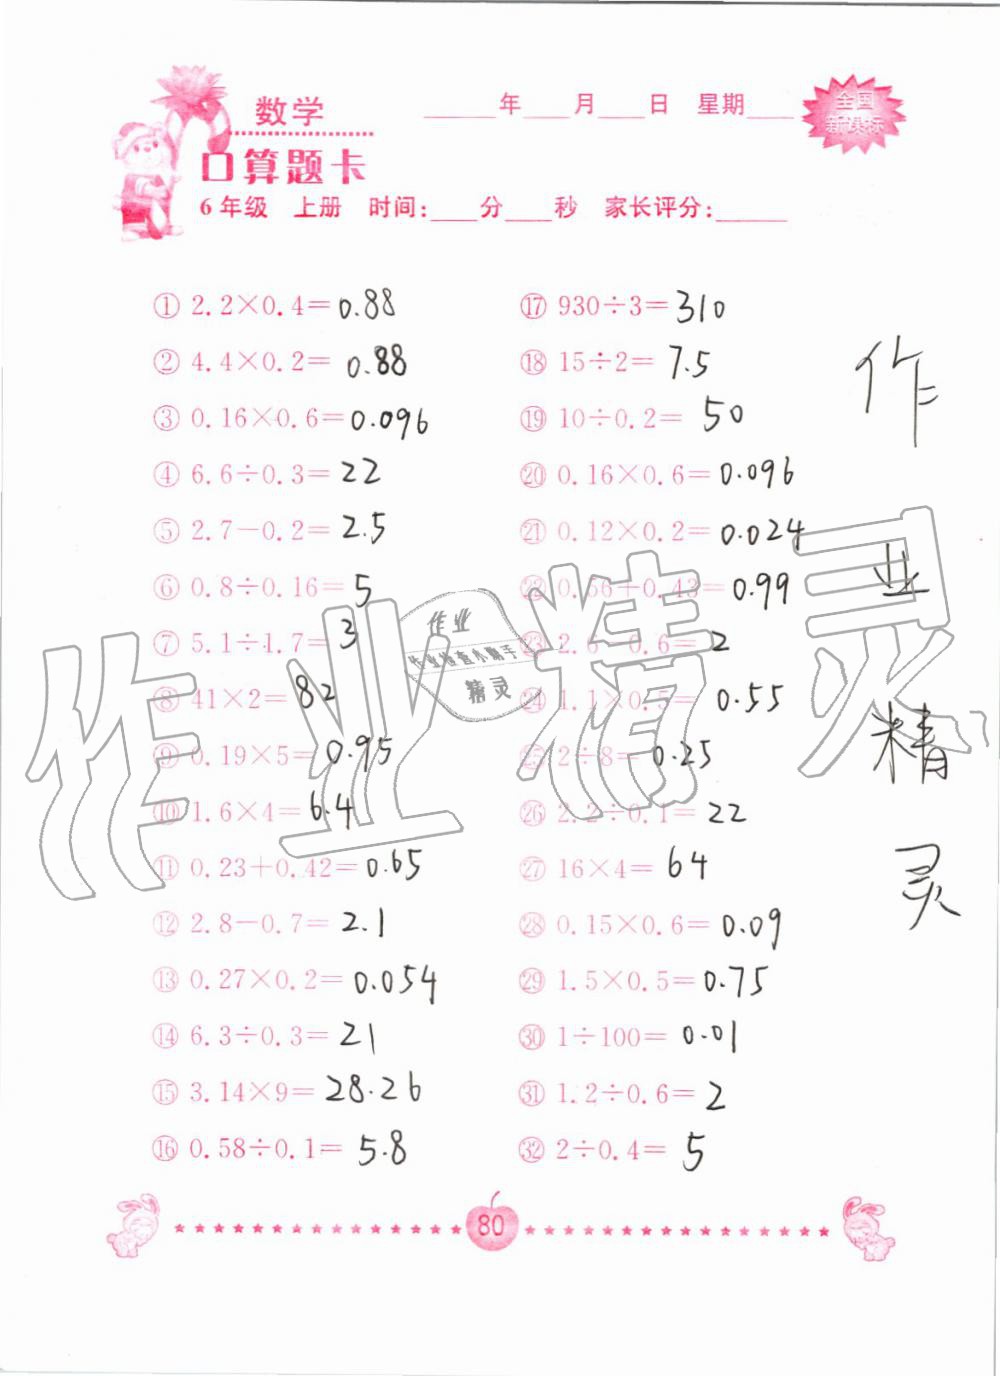 数学
____年____月____日 星期____
全国
新课标
口算题卡
6年级 上册 时间:____分____秒 家长评分:______
① 2.2×0.4=0.88
② 4.4×0.2=0.88
③ 0.16×0.6=0.096
④ 6.6÷0.3=22
⑤ 2.7-0.2=2.5
⑥ 0.8÷0.16=5
⑦ 5.1÷1.7=3
⑧ 41×2=82
⑨ 0.19×5=0.95
⑩ 1.6×4=6.4
⑪ 0.23+0.42=0.65
⑫ 2.8-0.7=2.1
⑬ 0.27×0.2=0.054
⑭ 6.3÷0.3=21
⑮ 3.14×9=28.26
⑯ 0.58÷0.1=5.8
⑰ 930÷3=310
⑱ 15÷2=7.5
⑲ 10÷0.2=50
⑳ 0.16×0.6=0.096
㉑ 0.12×0.2=0.024
㉒ 0.56+0.43=0.99
㉓ 2.6-0.6=2
㉔ 1.1×0.5=0.55
㉕ 2÷8=0.25
㉖ 2.2÷0.1=22
㉗ 16×4=64
㉘ 0.15×0.6=0.09
㉙ 1.5×0.5=0.75
㉚ 1÷100=0.01
㉛ 1.2÷0.6=2
㉜ 2÷0.4=5
作
业
精
灵
作业精灵
作业
作业检查小助手
精灵
80